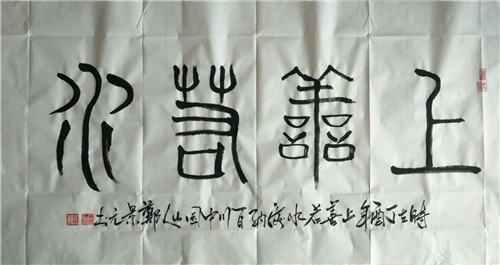 上善若水
時在丁酉年上善若水海納百川中国山人鄭景元书